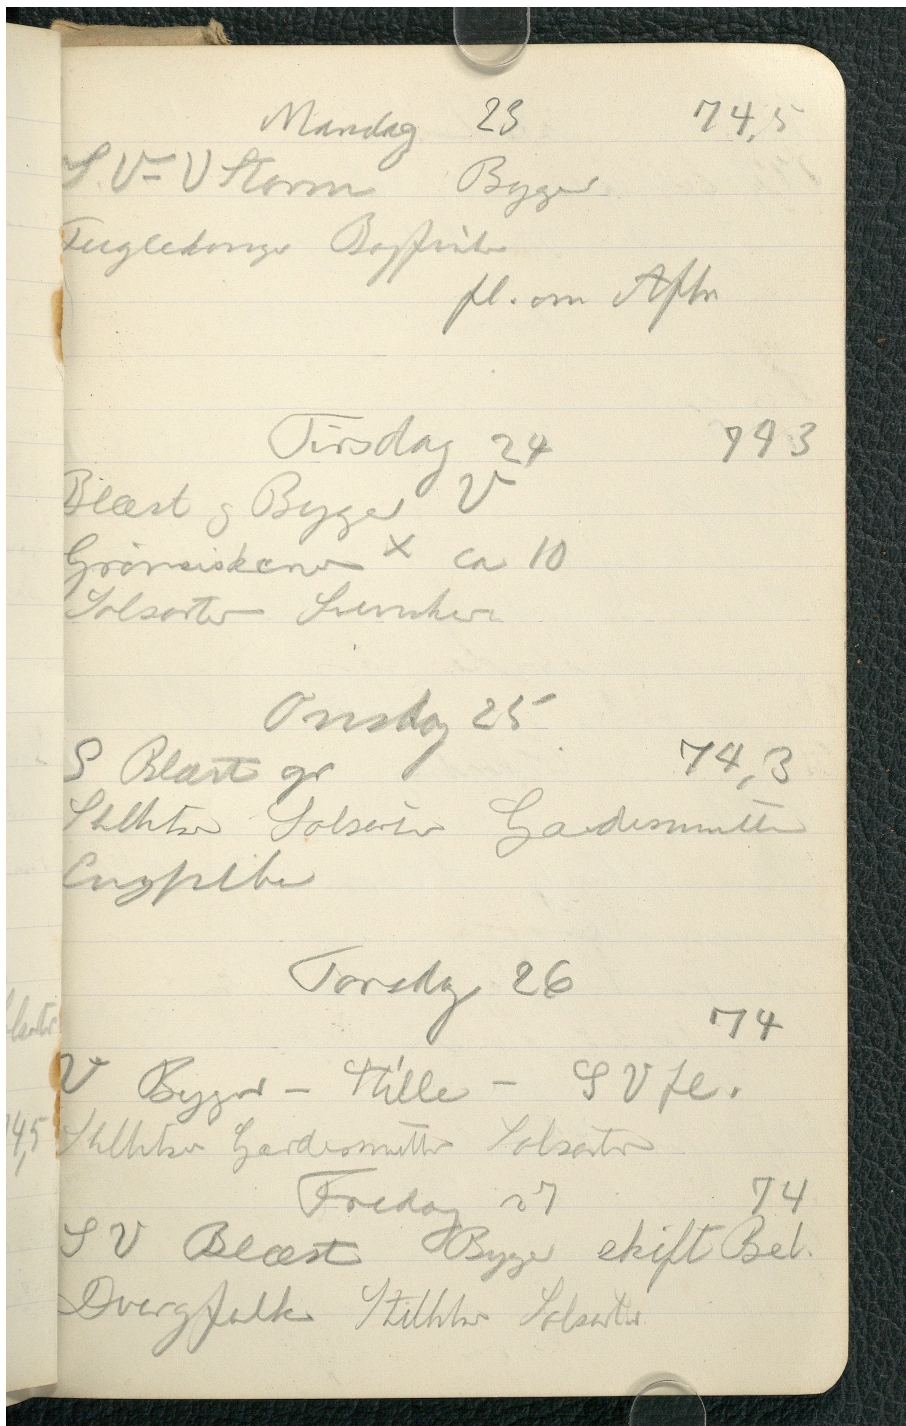 Mandag 23 74,5
S.V-V Storm Byger
Fuglekonge Bogfinke
fl. om Aftn
Tirsdag 24 793
Blæst og Byger V
Grønsiskener x ca 10
Solsorter
Onsdag 25
S Blæst gr 74,3
Stillitser Solsorter Gærdesmutter
Engpiber
Torsdag 26
74
V Byger - Stille - S V fl.
Stillitser Gærdesmutter Solsorter
Fredag 27 74
S V Blæst Byger skift Bel.
Dvergfalk Stillitser Solsorter